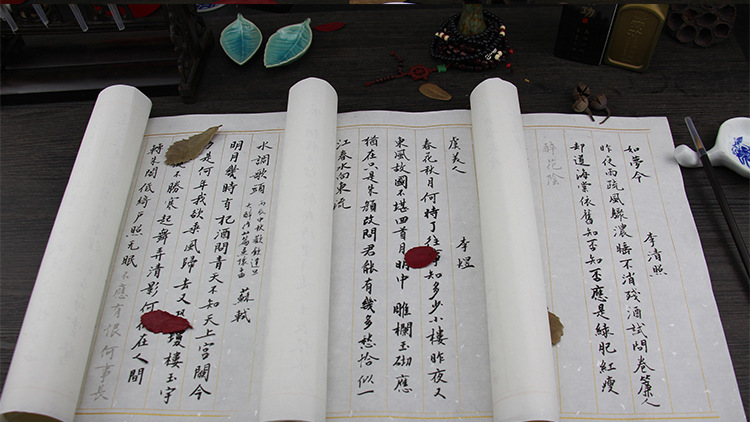 如夢令
李清照
昨夜雨疏風驟濃睡不消残酒試問卷簾人
却道海棠依舊知否知否應是綠肥紅瘦
醉花陰
虞美人
李煜
春花秋月何時了往事知多少小樓昨夜又
東風故國不堪回首月明中 雕欄玉砌應
猶在只是朱顏改問君能有幾多愁恰似一
江春水向東流
水調歌頭
丙辰中秋歡飲達旦
大醉作此篇兼懷子由
蘇軾
明月幾時有把酒問青天不知天上宮闕今
夕是何年我欲乘風歸去又恐瓊樓玉宇
處不勝寒起舞弄清影何似在人間
轉朱閣低綺戶照无眠不應有恨何事長